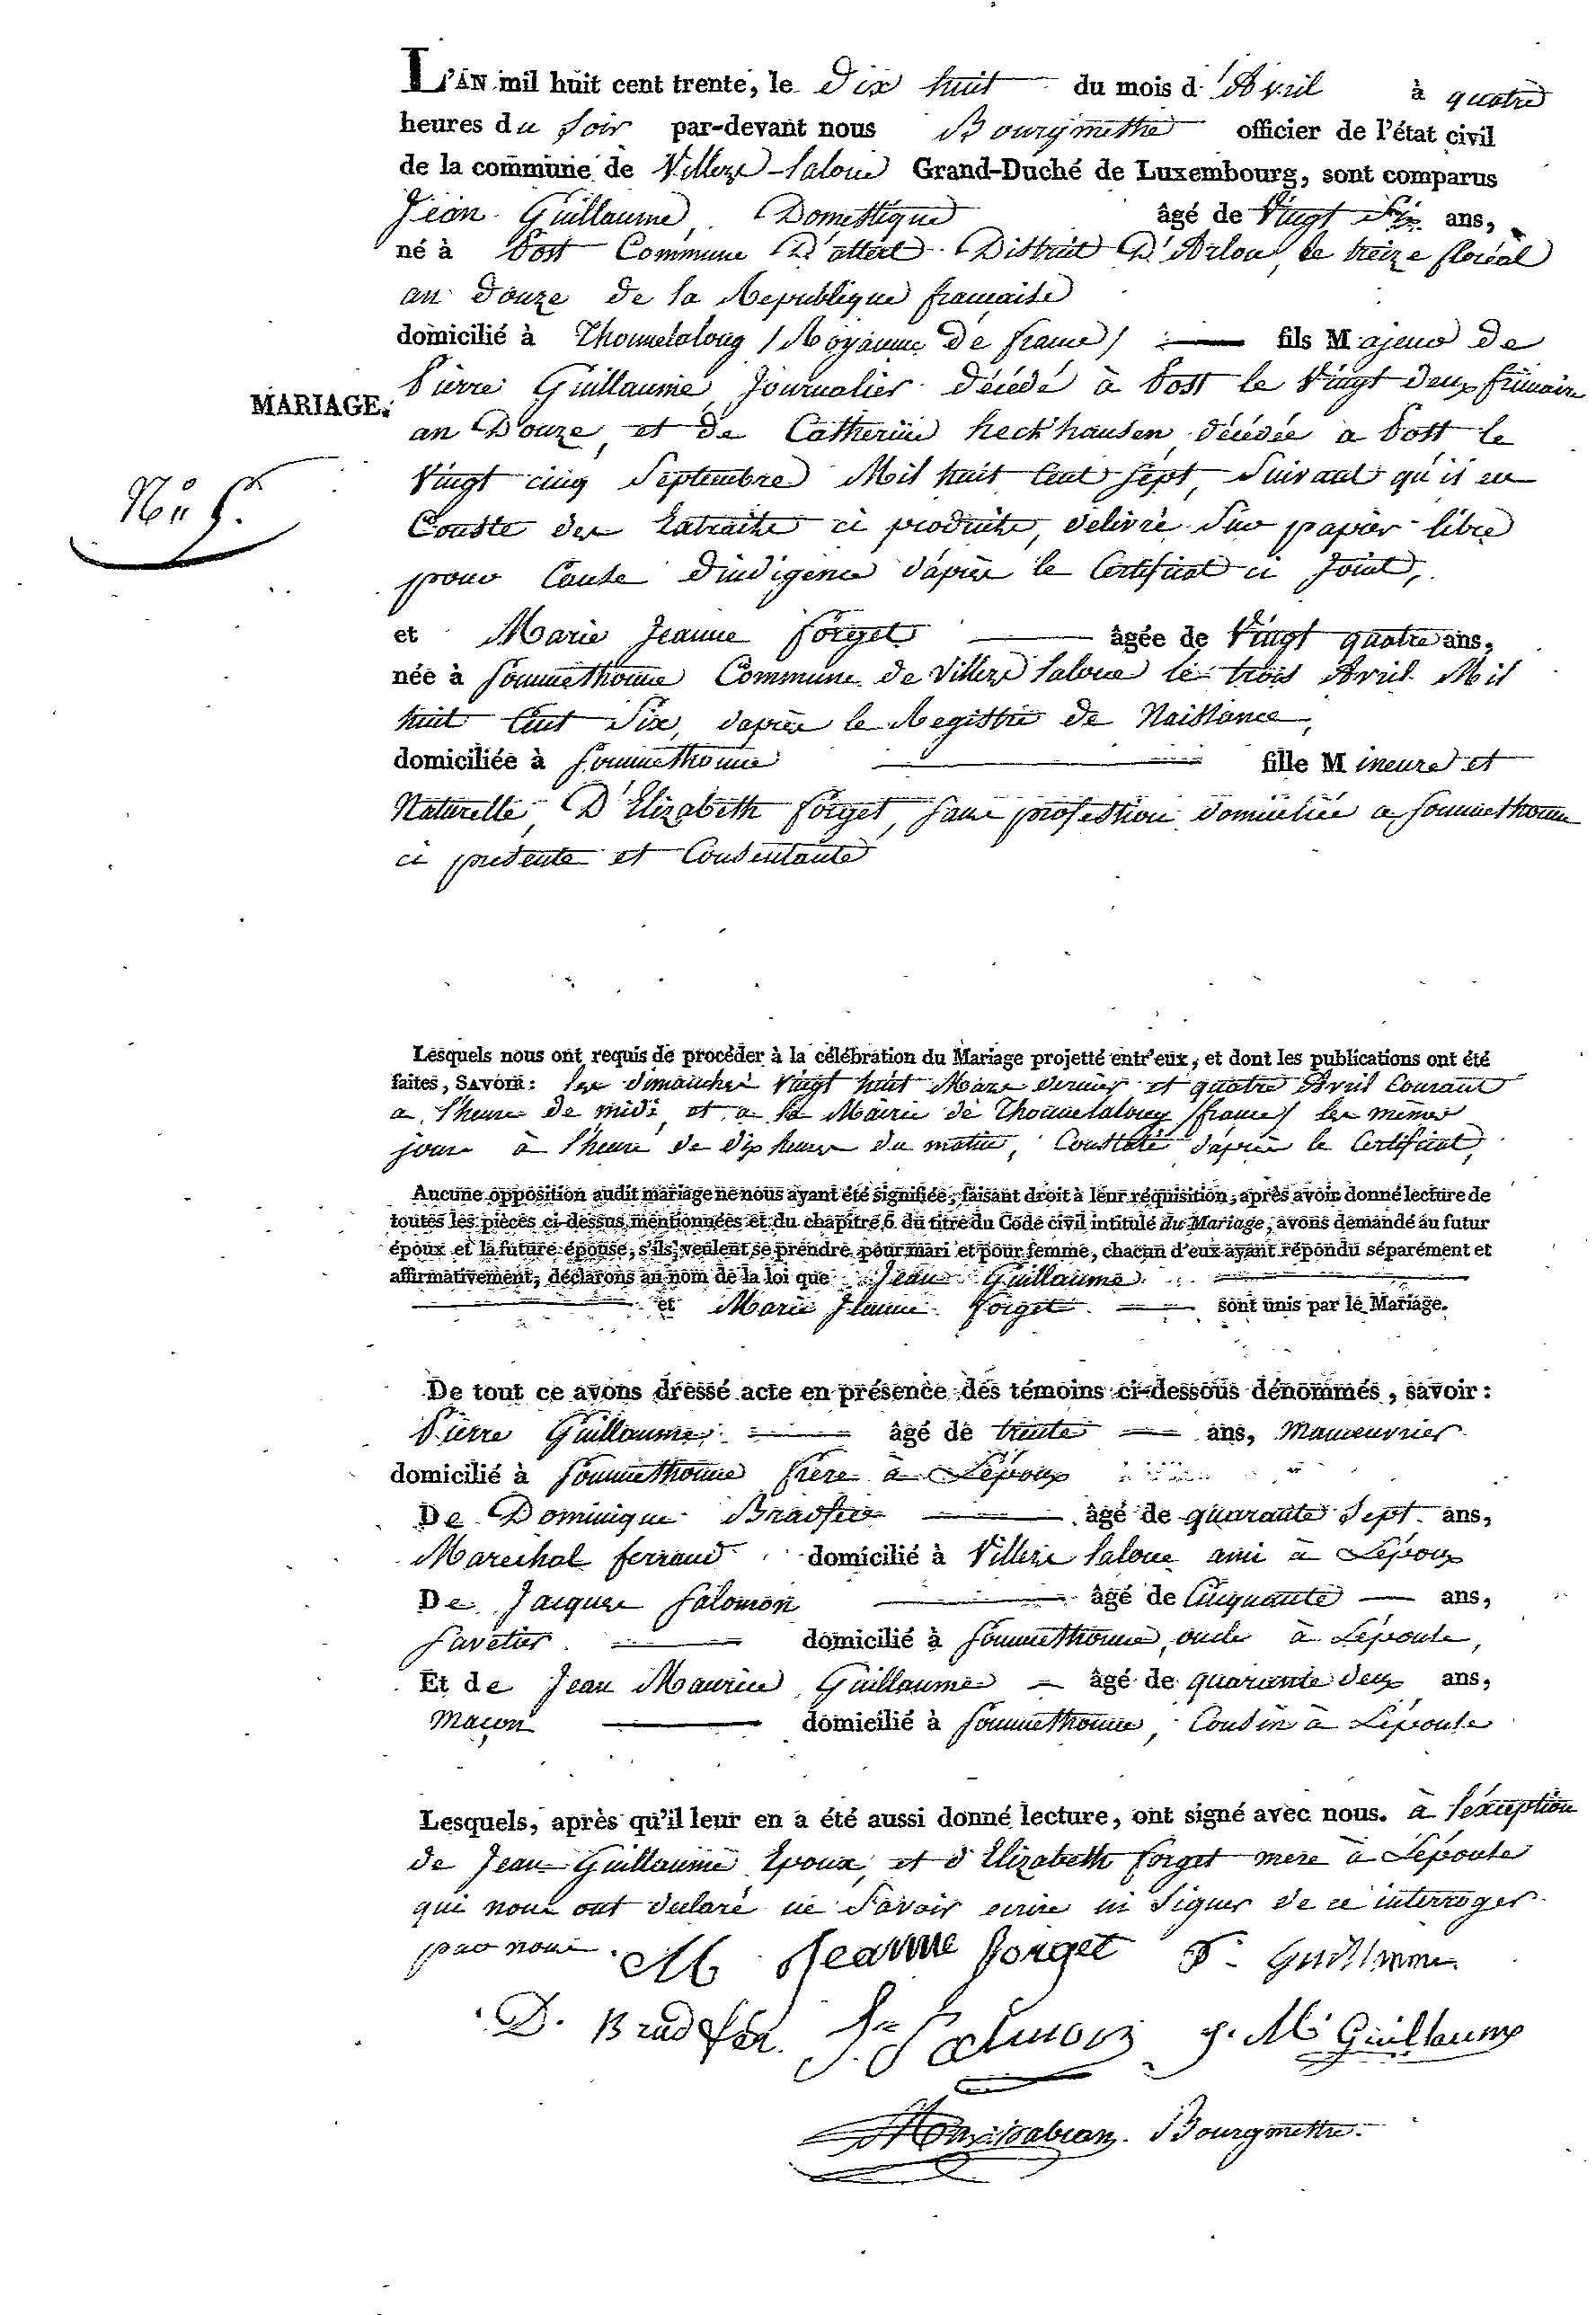 L'AN mil huit cent trente, le dix huit du mois d'Avril à quatre
heures du soir par-devant nous Bourgmettre officier de l'état civil
de la commune de Villers Laloue Grand-Duché de Luxembourg, sont comparus
Jean Guillaume, Domestique âgé de Vingt Six ans,
né à Post Commune D'attert District D'Arlon, le treize floréal
an douze de la Republique française
domicilié à Thonnelalong / Royaume de france / fils Majeur de
MARIAGE.
Pierre Guillaume Journalier décédé à Post le Vingt deux frimaire
an Douze, et de Catherine heckhausen décédée a Post le
Vingt cinq Septembre Mil huit Cent Sept, Suivant qu'il en
N° 5.
Conste des Extraits ci produits, délivré Sur papier libre
pour Cause d'indigence d'après le Certificat ci Joint,
et Marie Jeanne forget âgée de Vingt quatre ans,
née à Sommethonne Commune de Villers Laloue le trois Avril Mil
huit Cent Six, d'après le Registre de Naissance,
domiciliée à Sommethonne fille Mineure et
Naturelle, D'Elizabeth forget, sans profession domiciliée a Sommethonne
ci presente et Consentante
Lesquels nous ont requis de procéder à la célébration du Mariage projetté entr'eux, et dont les publications ont été
faites, SAVOIR: les dimanches Vingt huit Mars dernier et quatre Avril Courant
a l'heure de midi, et a la Mairie de Thonnelalong / france / les mêmes
jours à l'heure de dix heures du matin, Constaté d'après le Certificat,
Aucune opposition audit mariage ne nous ayant été signifiée, faisant droit à leur réquisition, après avoir donné lecture de
toutes les pièces ci-dessus mentionnées et du chapitre 6 du titre du Code civil intitulé du Mariage, avons demandé au futur
époux et la future épouse, s'ils veulent se prendre pour mari et pour femme, chacun d'eux ayant répondu séparément et
affirmativement, déclarons au nom de la loi que Jean Guillaume
et Marie Jeanne forget sont unis par le Mariage.
De tout ce avons dressé acte en présence des témoins ci-dessous dénommés, savoir:
Pierre Guillaume âgé de trente ans, Manoeuvrier
domicilié à Sommethonne frère à L'époux
De Dominique Bradfer âgé de quarante Sept ans,
Marechal ferrand domicilié à Villers Laloue ami à L'époux
De Jacques Salomon âgé de Cinquante ans,
Savetier domicilié à Sommethonne, oncle à L'épouse,
Et de Jean Maurice Guillaume âgé de quarante deux ans,
maçon domicilié à Sommethonne, Cousin à L'épouse
Lesquels, après qu'il leur en a été aussi donné lecture, ont signé avec nous. à l'exception
de Jean Guillaume Epoux, et d'Elizabeth forget mere à L'épouse
qui nous ont declaré ne Savoir ecrire ni Signer de ce interroger
par nous. M Jeanne forget P. Guillaume
D. Bradfer. J. Salmon J. M Guillaume
Bourgmettre.